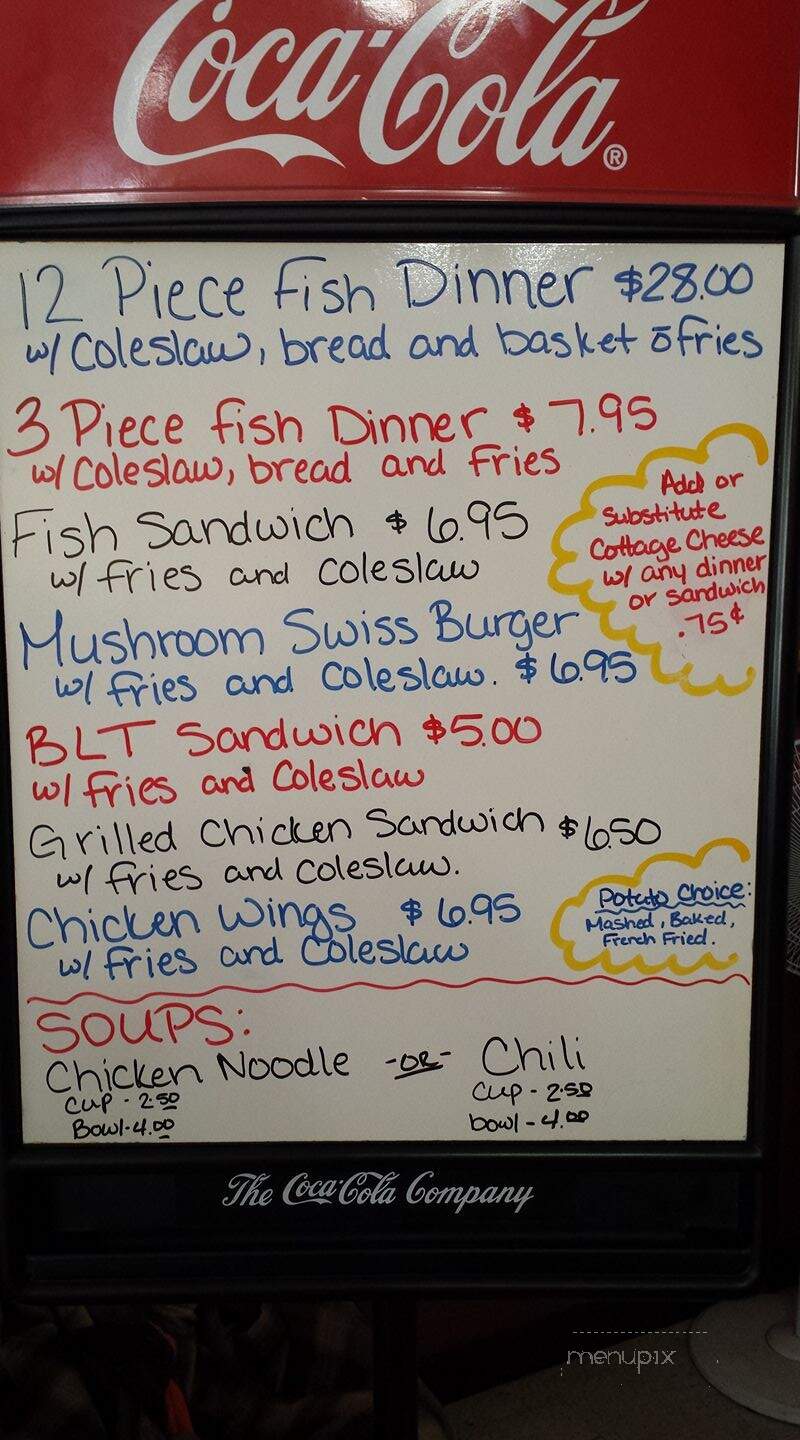 Coca-Cola®
12 Piece Fish Dinner $28.00
w/ Coleslaw, bread and basket ō fries
3 Piece fish Dinner $7.95
w/ Coleslaw, bread and Fries
Add or
Substitute
Cottage Cheese
w/ any dinner
or sandwich
.75¢
Fish Sandwich $6.95
w/ fries and coleslaw
Mushroom Swiss Burger
w/ fries and Coleslaw. $6.95
BLT Sandwich $5.00
w/ fries and Coleslaw
Grilled Chicken Sandwich $6.50
w/ fries and coleslaw.
Chicken Wings $6.95
w/ fries and Coleslaw
Potato Choice:
Mashed, Baked,
French Fried.
SOUPS:
Chicken Noodle -OR- Chili
Cup - 2.50
Bowl - 4.00
Cup - 2.50
bowl - 4.00
The Coca-Cola Company
menupix